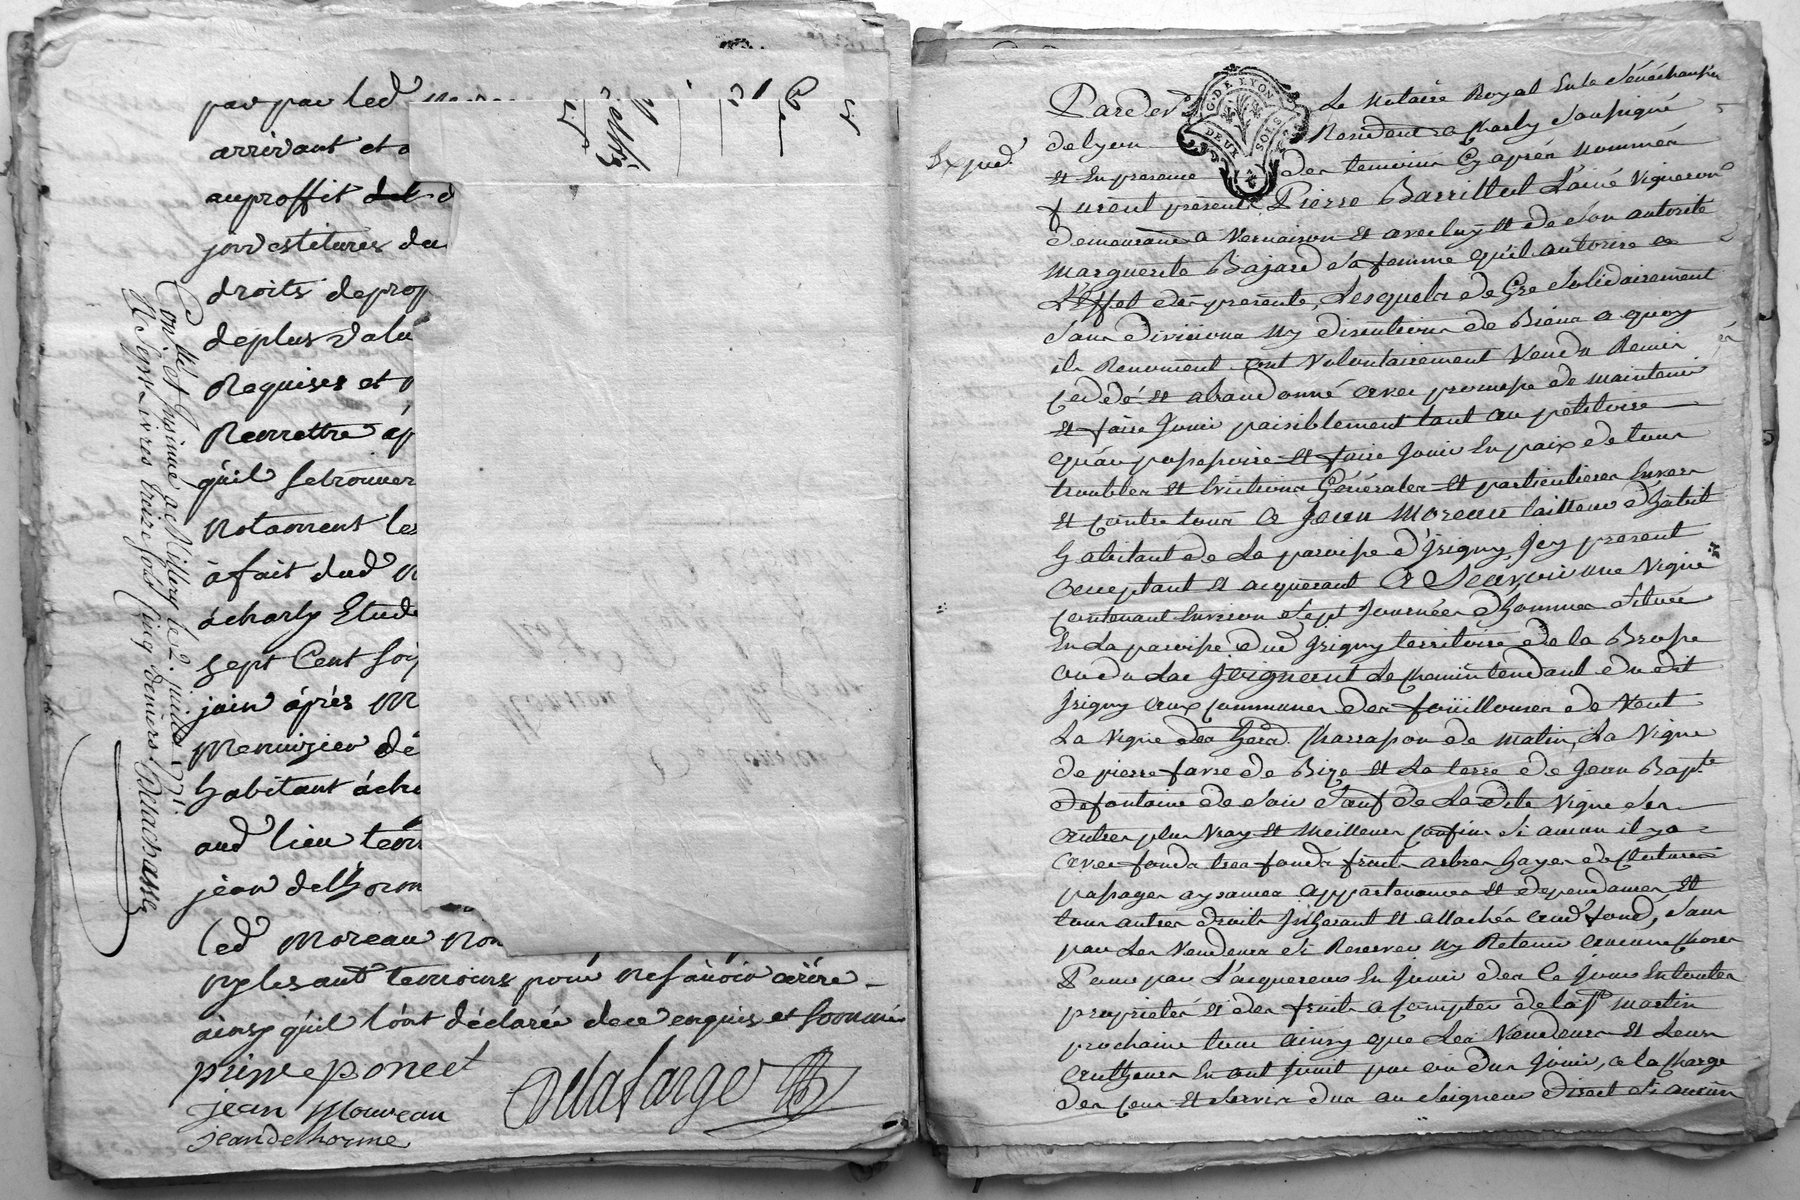 par par led
arrivant et
auproffit
jnvestitures du
droits de prop
de plus valu
Requises et
Remettre ap
qu'il se trouver
Notament les
a fait dud
a charly Etude
sept Cent soi
juin áprés M
Menuizier de
habitant à cha
aud lieu tem
jean delhorm
led Moreau Non
ny lesaut temoins pour ne sçavoir ecrire
ainsy qu'il l'ont déclarée de ce enquis et sommé
pierre poncet
jean Moureau
jean delhorme
Delafarge
Con.llé et Jnsinué a Millery le 2. juillet
R Sept Livres treize sols cinq deniers Delachasse
Exped.
G. DE LYON
DEUX SOLS
Pardev.t Le Notaire Royal En la sénéchaussée
de lyon Résident a Charly soussigné
et En presence des temoins Cy aprés nommés
furent présents Pierre Barrillot L'ainé Vigneron
demeurant a Vernaison et avec luy et de son autorité
Marguerite Bajard sa femme qu'il autorise a
L'effet des présentes, Lesquels de Gré solidairement
sans divisions ny discutions de Biens a quoy
ils Renoncent ont Volontairement Vendu Remis
Ceddé et abandonné avec promesse de maintenir
et faire Jouir paisiblement tant au petitoire
qu'au possessoire et faire Jouir En paix de tous
troubles et Evictions Générales et particulieres Envers
et Contre tous a Jean Moreau tailleur d'habit
habitant de La paroisse d'Jrigny Jcy present
acceptant et acquerant A Sçavoir une Vigne
Contenant Environ sept Journées d'hommes située
En La paroisse dud Jrigny territoire de la Brosse
ou du Lac Joignant Le chemin tendant dudit
Jrigny aux Communes des fouillouses de Vent
La Vigne des hérd. Charrapon de matin, La Vigne
de pierre favre de Bize et La terre de Jean Bap.te
defontaine de soir sauf de Ladite Vigne ses
autres plus Vray et Meilleurs Confins si aucun il y a
avec fonds tres fonds fruits arbres hayes de Cloture
passages aysances appartenances et dependances et
tous autres droits Jnhérant et attachés aud fond, sans
par Les Vendeurs si Reserver ny Retenir aucune Choses
Pour par L'acquereur En Jouir des Ce Jour En toutes
proprietés et des fruits a Compter de la S.t Martin
prochaine tous ainsy que Les Vendeurs et Leurs
autheurs En ont Jouit pu ou du Jouir, a la Charge
des Cens et servis dus au seigneur direct si aucun